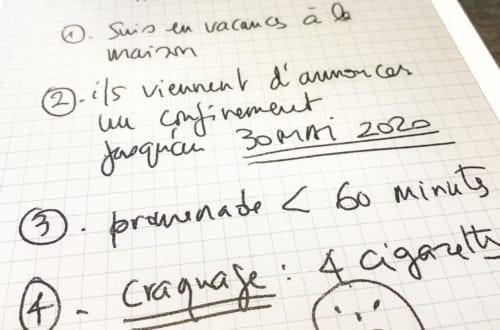 ①. Suis en vacances à la
maison
②. ils viennent d'annoncer
un confinement
jusqu'au 30 MAI 2020
③. promenade < 60 minutes
④ - craquage : 4 cigarettes